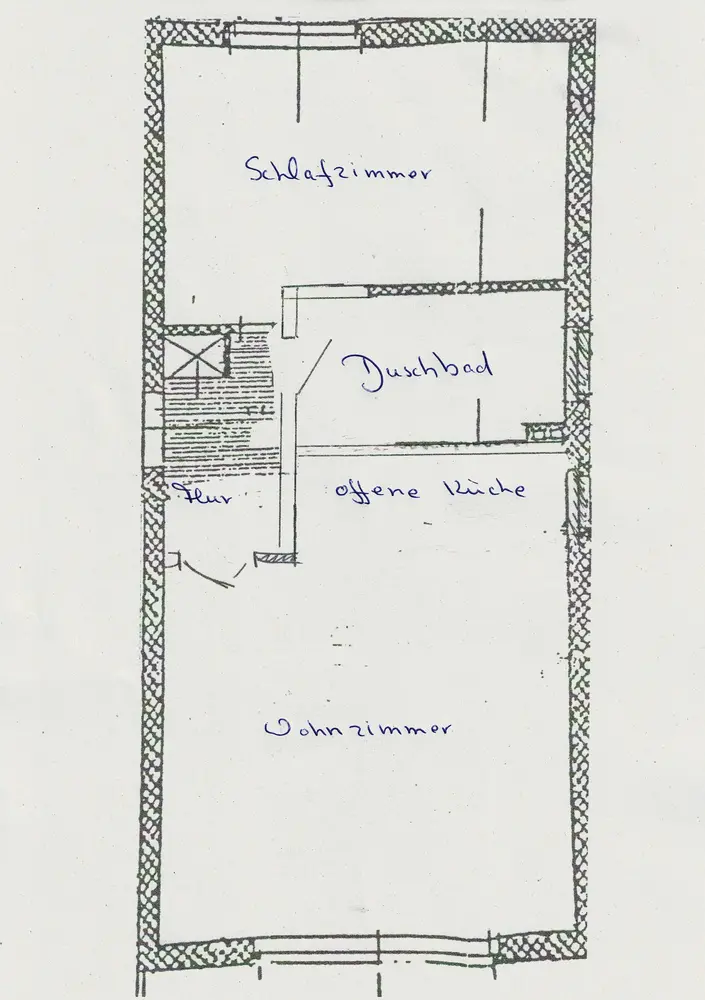 Schlafzimmer
Duschbad
Flur
offene Küche
Wohnzimmer